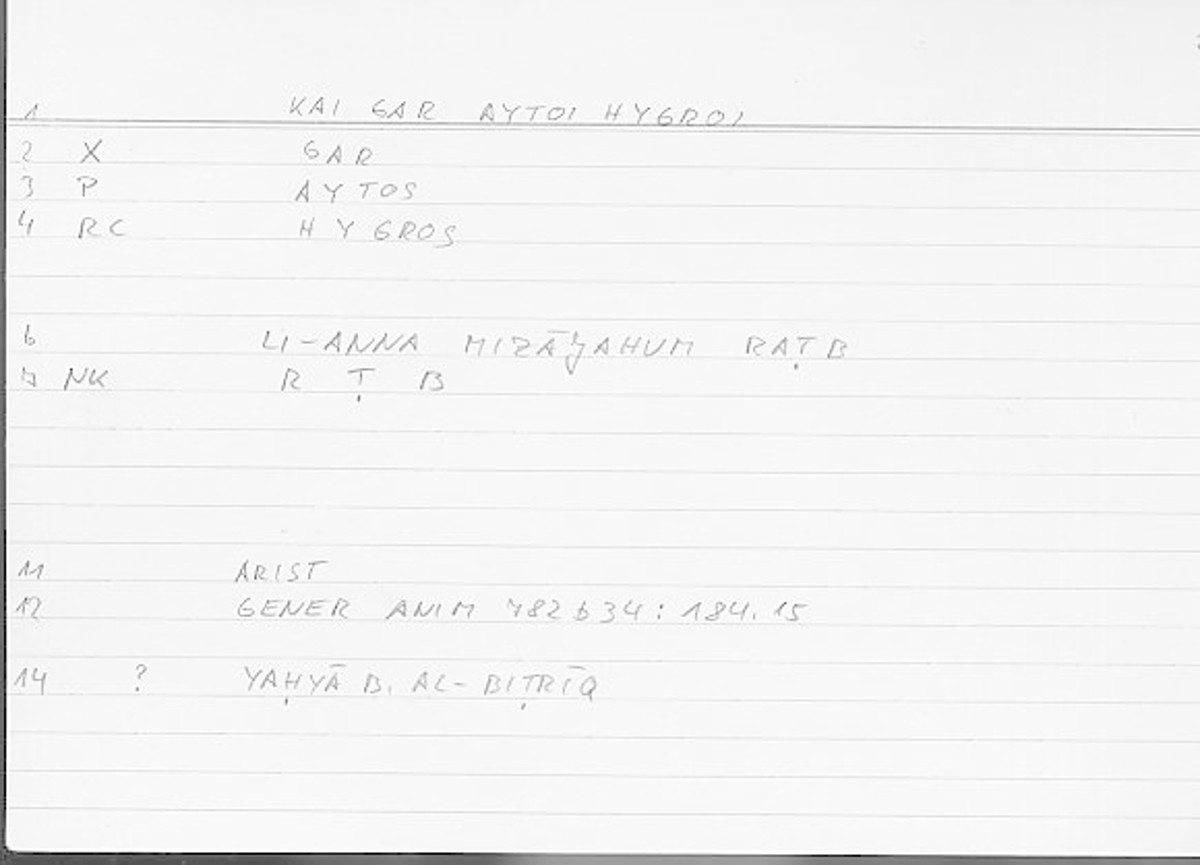 1 KAI GAR AYTOI HYGROI
2 X GAR
3 P AYTOS
4 RC HYGROS
6 LI-ANNA MIZĀǦAHUM RAṬB
7 NK R Ṭ B
11 ARIST
12 GENER ANIM 782 b 34 : 184.15
14 ? YAḤYĀ B. AL-BIṬRĪQ